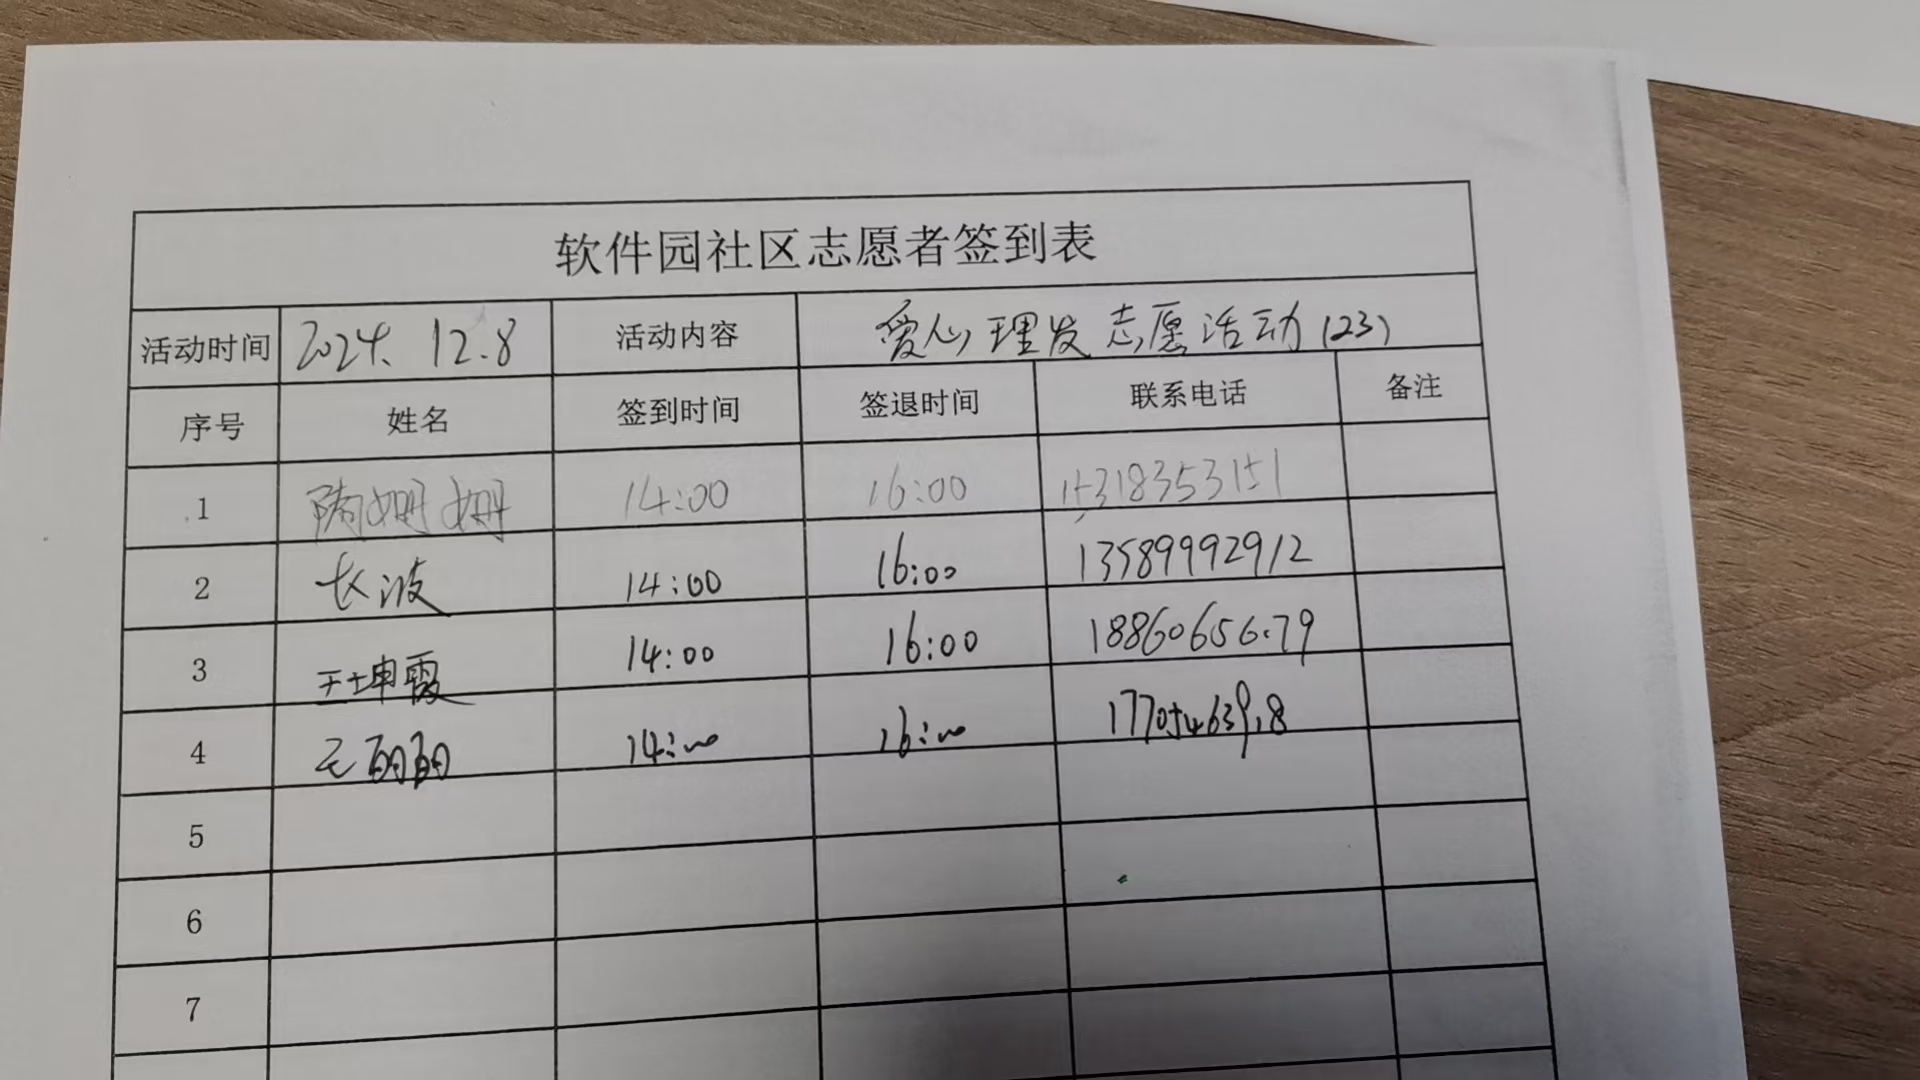 软件园社区志愿者签到表
活动时间 2024. 12.8 活动内容 爱心理发志愿活动(23)
序号 姓名 签到时间 签退时间 联系电话 备注
1 陶姗姗 14:00 16:00 15318353151
2 长波 14:00 16:00 13589992912
3 王坤霞 14:00 16:00
4 14:00 16:00
5
6
7